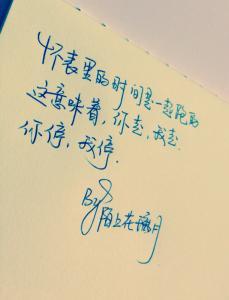 怀表里的时间是一起跑的
这意味着，你走，我走.
你停，我停.
By 陌上花满月